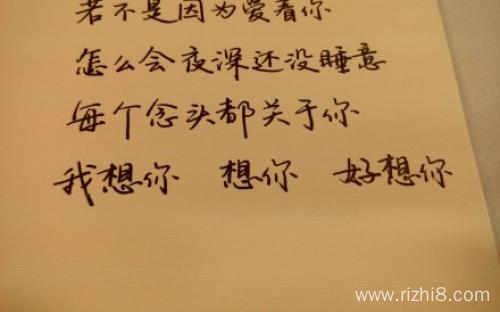 若不是因为爱着你
怎么会夜深还没睡意
每个念头都关于你
我想你 想你 好想你
www.rizhi8.com